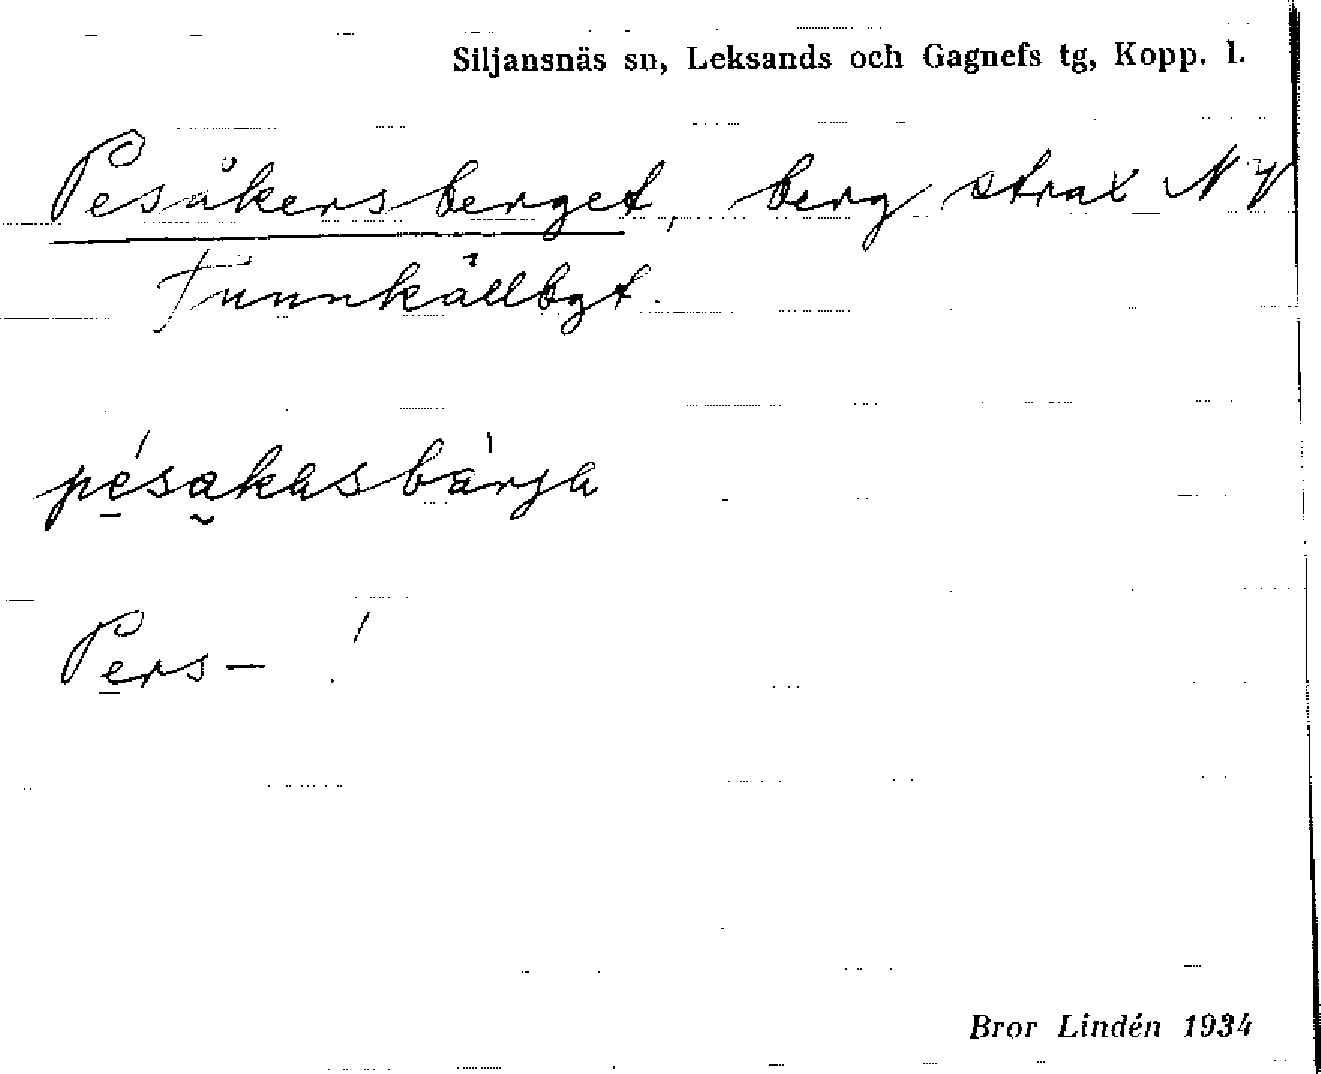 Siljansnäs sn, Leksands och Gagnefs tg, Kopp. l.
Pesåkersberget, berg strax N
Tunnkällbgt.
pésakasbárja
Pers- !
Bror Lindén 1934